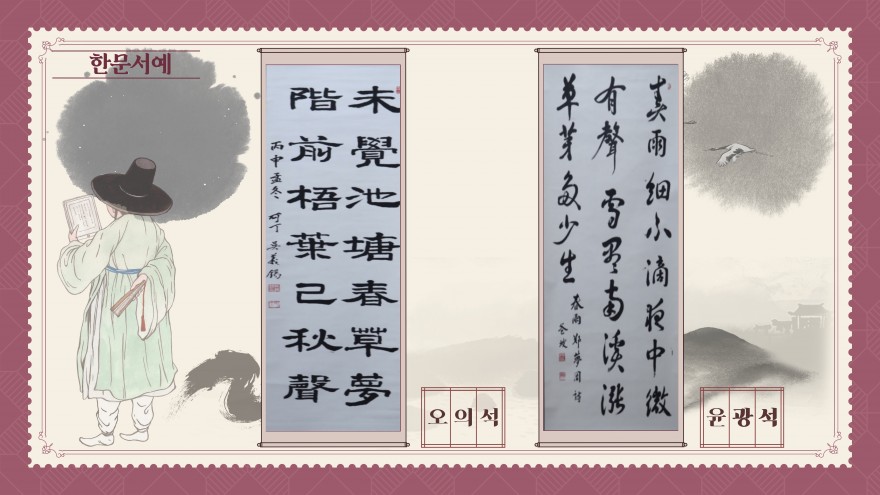 한문서예
未覺池塘春草夢
階前梧葉已秋聲
丙申孟冬
吳義錫
오의석
春雨細不滴夜中微
有聲雪盡南溪漲
草芽多少生
春雨鄭夢周詩
윤광석